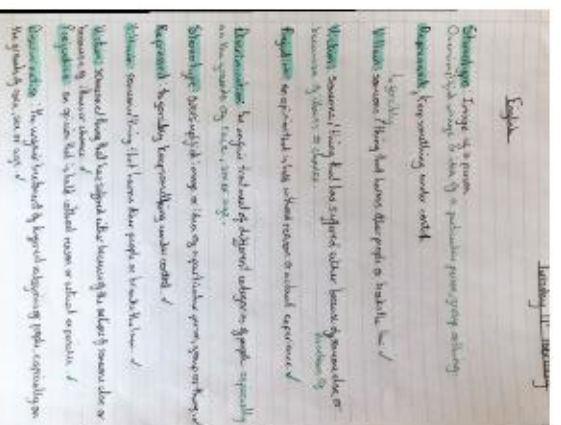 Tuesday 11th February
English
Stereotype Image of a person
Oversimplified image or idea of a particular person, group or thing.
Represented, Keep something under control
Villain: someone / thing that harms other people or breaks the law ✓
Victim: someone / thing that has suffered either because of someone else or
because of illness or chance
Prejudice: an opinion that is held without reason or actual experience ✓
Discrimination: the unfair treatment of different categories of people especially
on the grounds of race, sex or age.
Stereotype: oversimplified image or idea of a particular person, group or thing. ✓
Repressed: to forcibly keep something under control ✓
Villain: someone / thing that harms other people or breaks the law ✓
Victim: someone / thing that has suffered either because of the actions of someone else or
because of illness or chance ✓
Prejudice: an opinion that is held without reason or actual experience ✓
Discrimination: the unfair treatment of different categories of people, especially on
the grounds of race, sex or age. ✓